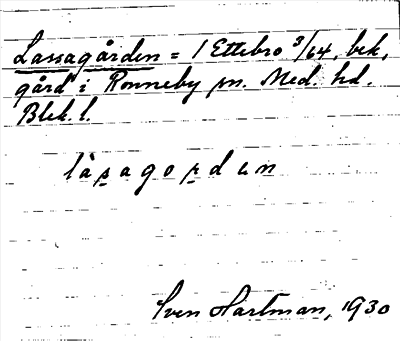 Lassagården = 1 Ettebro 3/64, bek.
gård i Ronneby sn. Med. hd.
Blek. l.
làs̱agoṟdɛn
Sven Hartman, 1930